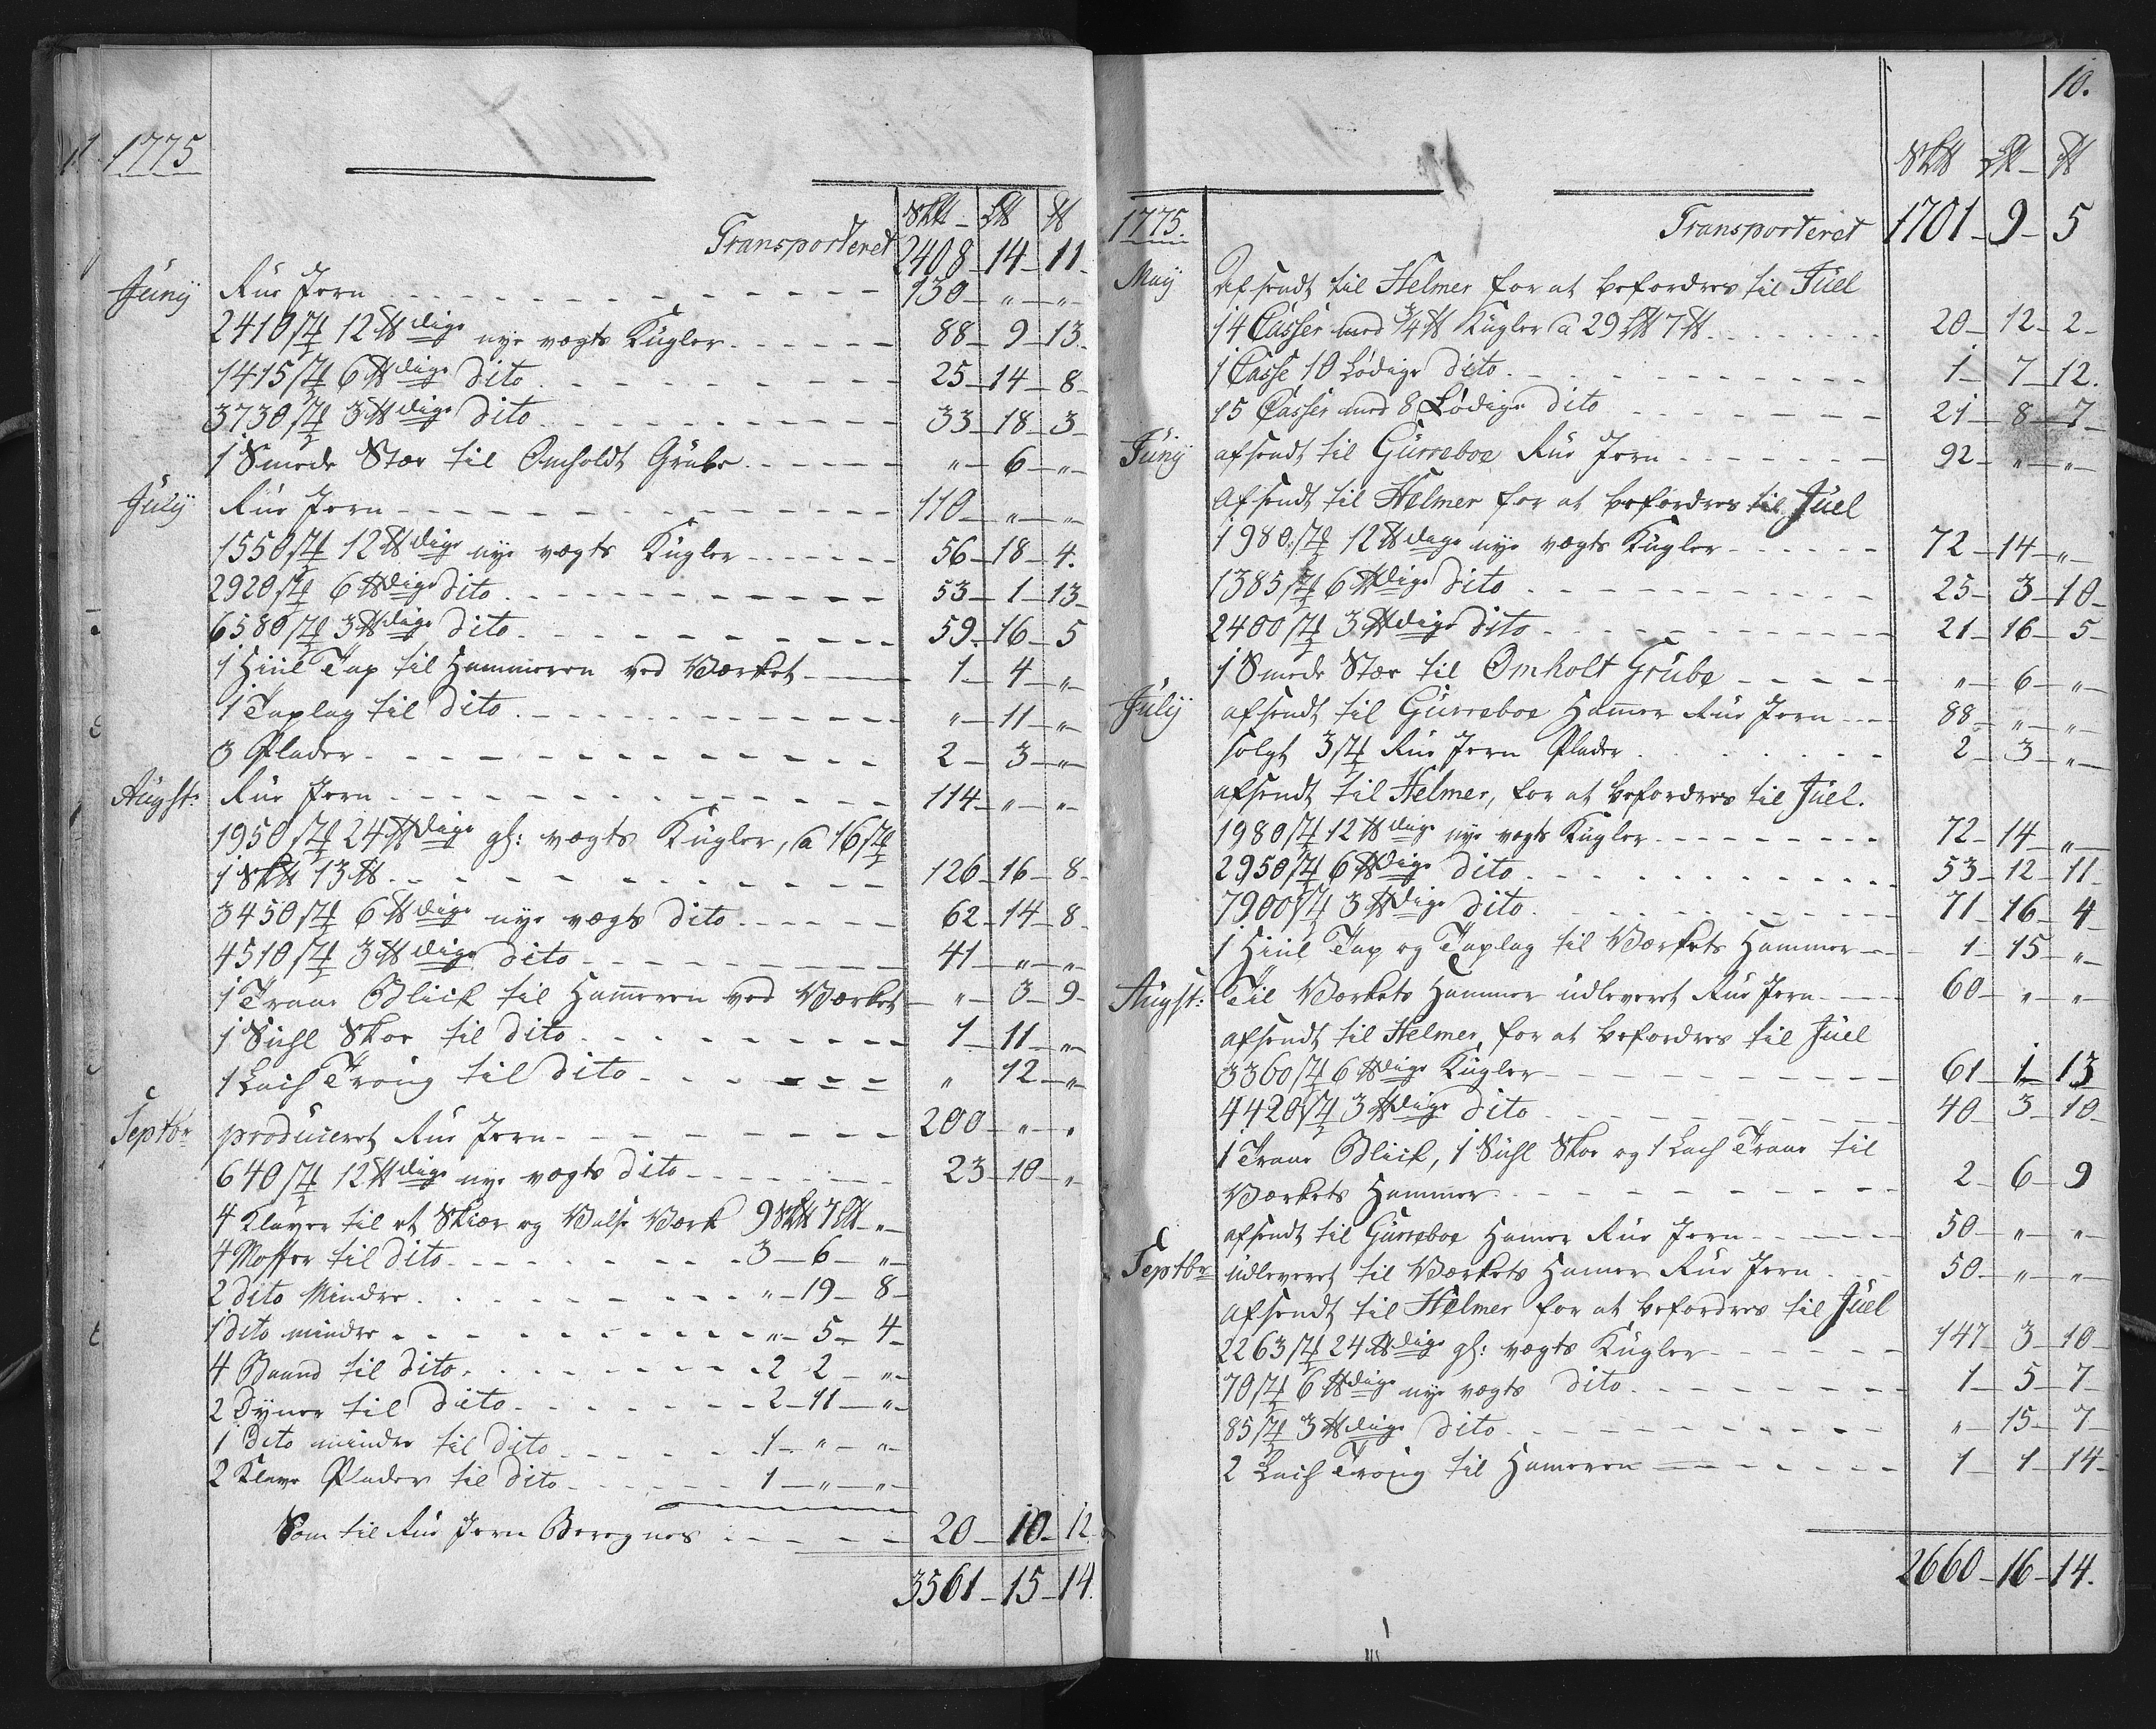 1775
Sk℔ — L℔ ℔
Transporteret 2408 — 14 — 11
Juny Rue Jern 130 — „ — „
2410 st 12 ℔dige nye vægts Kugler 88 — 9 — 13
1415 st 6 ℔dige Dito 25 — 14 — 8
3730 st 3 ℔dige Dito 33 — 18 — 3
1 Smede Stæe til Omholdt Grube „ — 6 — „
July Rue Jern 110 — „ — „
1550 st 12 ℔dige nye vægts Kugler 56 — 18 — 4
2920 st 6 ℔dige Dito 53 — 1 — 13
6580 st 3 ℔dige Dito 59 — 16 — 5
1 Hiül Tap til Hammeren ved Værket 1 — 4 — „
1 Taplag til Dito „ — 11 — „
3 Plader 2 — 3 — „
Augst: Rue Jern 114 — „ — „
1950 st 24 ℔dige gl: vægts Kugler, a 16 st
1 Sk℔ 13 ℔ 126 — 16 — 8
3450 st 6 ℔dige nye vægts Dito 62 — 14 — 8
4510 st 3 ℔dige Dito 41 — „ — „
1 Traae Blick til Hameren ved Værket „ — 3 — 9
1 Suhl Skoe til Dito 1 — 11 — „
1 Lach Troug til Dito „ 12 — „
Septbr produceret Rue Jern 200 — „ — „
640 st 12 ℔dige nye vægts Dito 23 — 10 — „
4 Klaver til et Skiær og Valse Værk 9 Sk℔ 7 L℔ — „
4 Moffer til Dito 3 — 6 — „
2 Dito Mindre „ — 19 — 8
1 Dito mindre „ — 5 — 4
4 Baand til Dito 2 2 — „
2 Dyner til Dito 2 — 11 — „
1 Dito mindre til Dito 1 — „ — „
2 Klave Plader til Dito 1 — „ — „
Som til Rue Jern Beregnes 20 — 10 — 12
3561 — 15 — 14
10.
Sk℔ L℔ — ℔
1775. Transporteret 1701 — 9 — 5
May Afsendt til Helmer for at befordres til Juel
14 Casser med 3/4 ℔ Kugler a 29 L℔ 7 ℔ 20 — 12 — 2
1 Casse 10 Lødige Dito 1 — 7 — 12
15 Casser med 8 Lødige Dito 21 — 8 — 7
Juny afsendt til Gurreboe Rue Jern 92 — „ — „
Afsendt til Helmer for at befordres til Juel
1980 st 12 ℔dige nye vægts Kugler 72 — 14 — „
1385 st 6 ℔dige Dito 25 — 3 — 10
2400 st 3 ℔dige Dito 21 — 16 — 5
1 Smede Stæe til Omholt Grube „ — 6 — „
July afsendt til Gurreboe Hamer Rue Jern 88 — „ — „
solgt 3 st Rue Jern Plader 2 — 3 — „
afsendt til Helmer, for at befordres til Juel.
1980 st 12 ℔dige nye vægts Kugler 72 — 14 — „
2950 st 6 ℔dige Dito 53 — 12 — 11
7900 st 3 ℔dige Dito 71 — 16 — 4
1 Hiül Tap og Taplag til Værkets Hammer 1 — 15 — „
Augst: Til Værkets Hammer udleveret Rue Jern 60 — „ — „
afsendt til Helmer, for at befordres til Juel
3360 st 6 ℔dige Kugler 61 — 1 — 13
4420 st 3 ℔dige Dito 40 — 3 — 10
1 Traae Blick, 1 Suhl Skoe og 1 Lach Traae til
Værkets Hammer 2 — 6 — 9
afsendt til Gurreboe Hamer Rue Jern 50 — „ — „
Septbr udleveret til Værkets Hamer Rue Jern 50 — „ — „
afsendt til Helmer for at befordres til Juel
2263 st 24 ℔dige gl: vægts Kugler 147 — 3 — 10
70 st 6 ℔dige nye vægts Dito 1 — 5 — 7
85 st 3 ℔dige Dito „ — 15 — 7
2 Lach Troug til Hameren 1 — 1 — 14
2660 — 16 — 14.